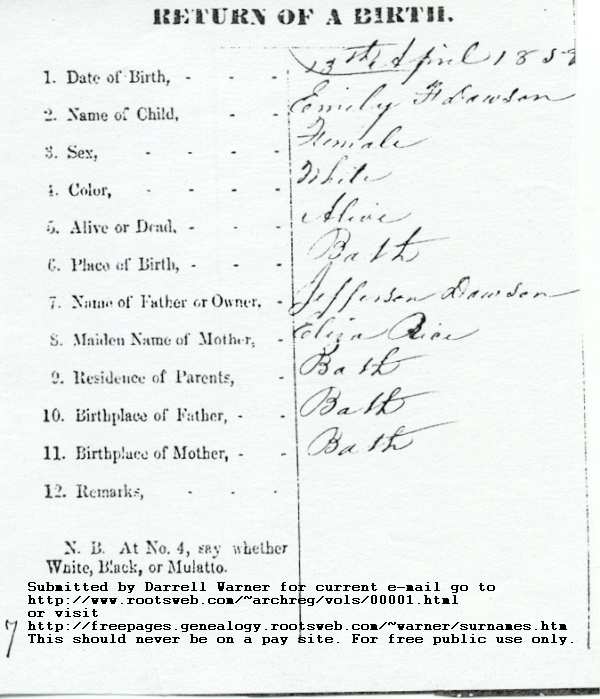 RETURN OF A BIRTH.
1. Date of Birth, - - - 13th April 185
2. Name of Child, - - Emily F Dawson
3. Sex, - - - - Female
4. Color, - - - - White
5. Alive or Dead, - - - Alive
6. Place of Birth, - - - Bath
7. Name of Father or Owner, - Jefferson Dawson
8. Maiden Name of Mother, - Eliza Rice
9. Residence of Parents, - Bath
10. Birthplace of Father, - - Bath
11. Birthplace of Mother, - - Bath
12. Remarks, - - -
N. B. At No. 4, say whether
White, Black, or Mulatto.
Submitted by Darrell Warner for current e-mail go to
http://www.rootsweb.com/~archreg/vols/00001.html
or visit
7 http://freepages.genealogy.rootsweb.com/~warner/surnames.htm
This should never be on a pay site. For free public use only.